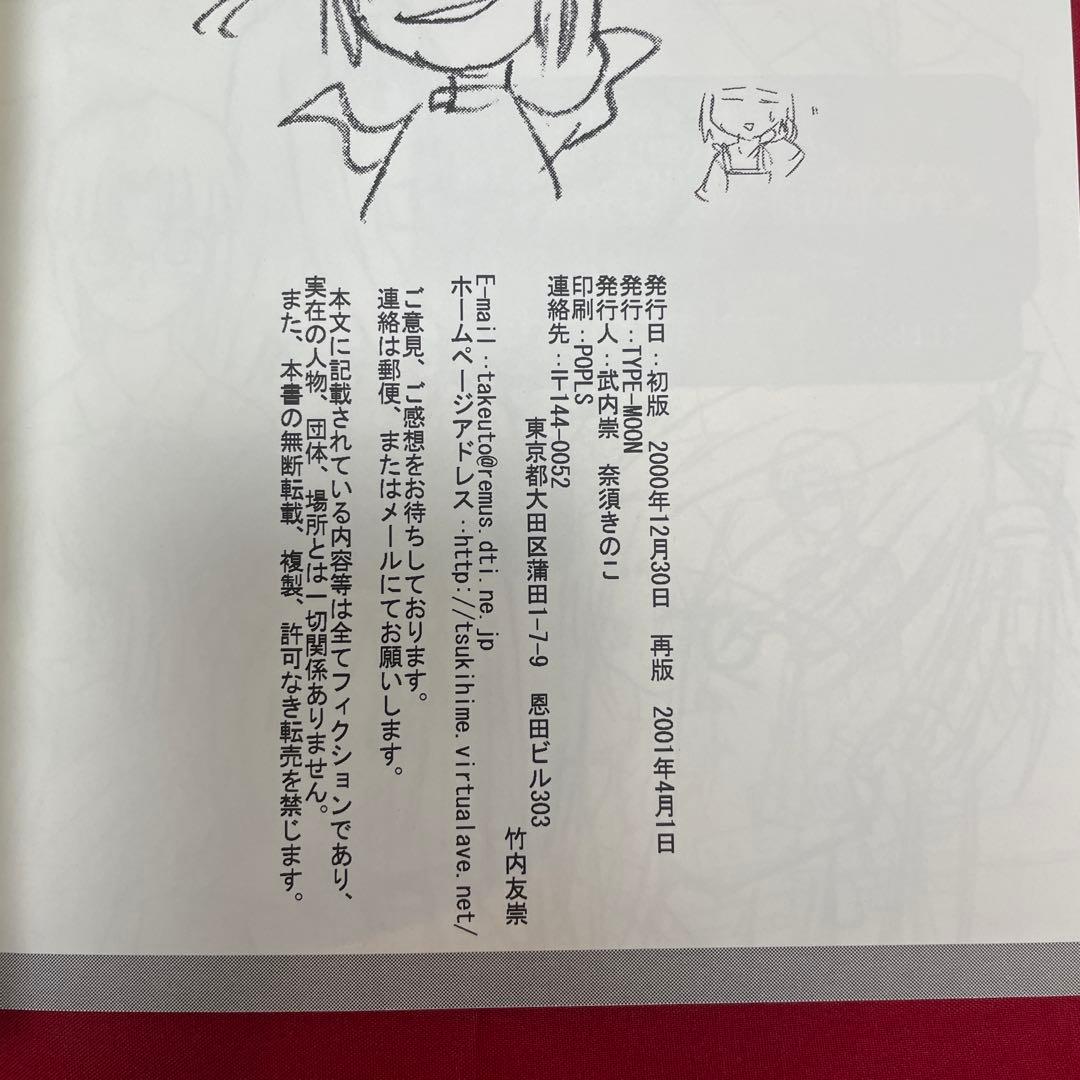 発行日：初版　2000年12月30日　再版　2001年4月1日
発行：TYPE-MOON
発行人：武内崇　奈須きのこ
印刷：POPLS
連絡先：〒144-0052
東京都大田区蒲田1-7-9　恩田ビル303
竹内友崇
E-mail：takeuto@remus.dti.ne.jp
ホームページアドレス：http://tsukihime.virtualave.net/
ご意見、ご感想をお待ちしております。
連絡は郵便、またはメールにてお願いします。
本文に記載されている内容等は全てフィクションであり、
実在の人物、団体、場所とは一切関係ありません。
また、本書の無断転載、複製、許可なき転売を禁じます。